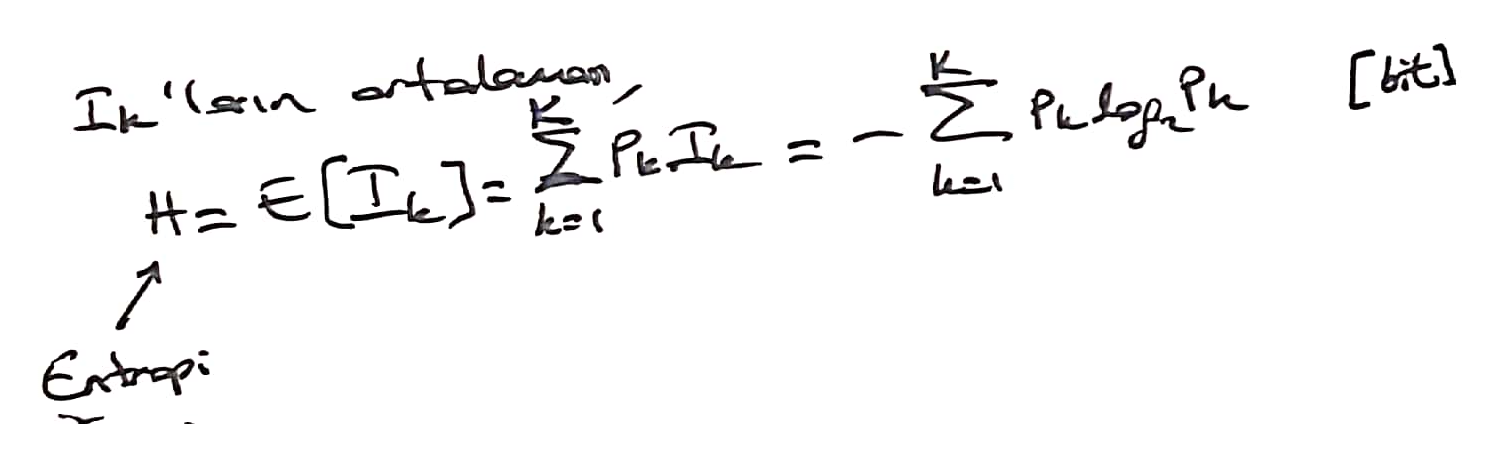 I_k'ların ortalaması,
H = E[I_k] = \sum_{k=1}^{K} P_k I_k = - \sum_{k=1}^{K} P_k log_2 P_k [bit]
Entropi